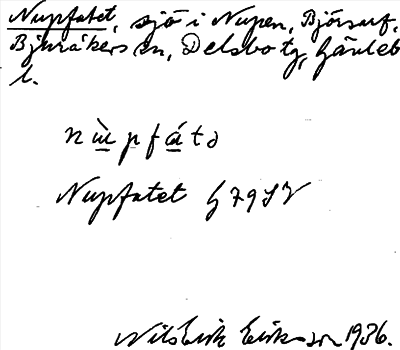 Nupfatet, sjö i Nupen, Björsarf,
Bjuråkers sn, Delsbo tg, Gävleb
l.
nu̱̇pfá̱tə
Nupfatet G 79 SV
Nils Erik Eriksson 1936.